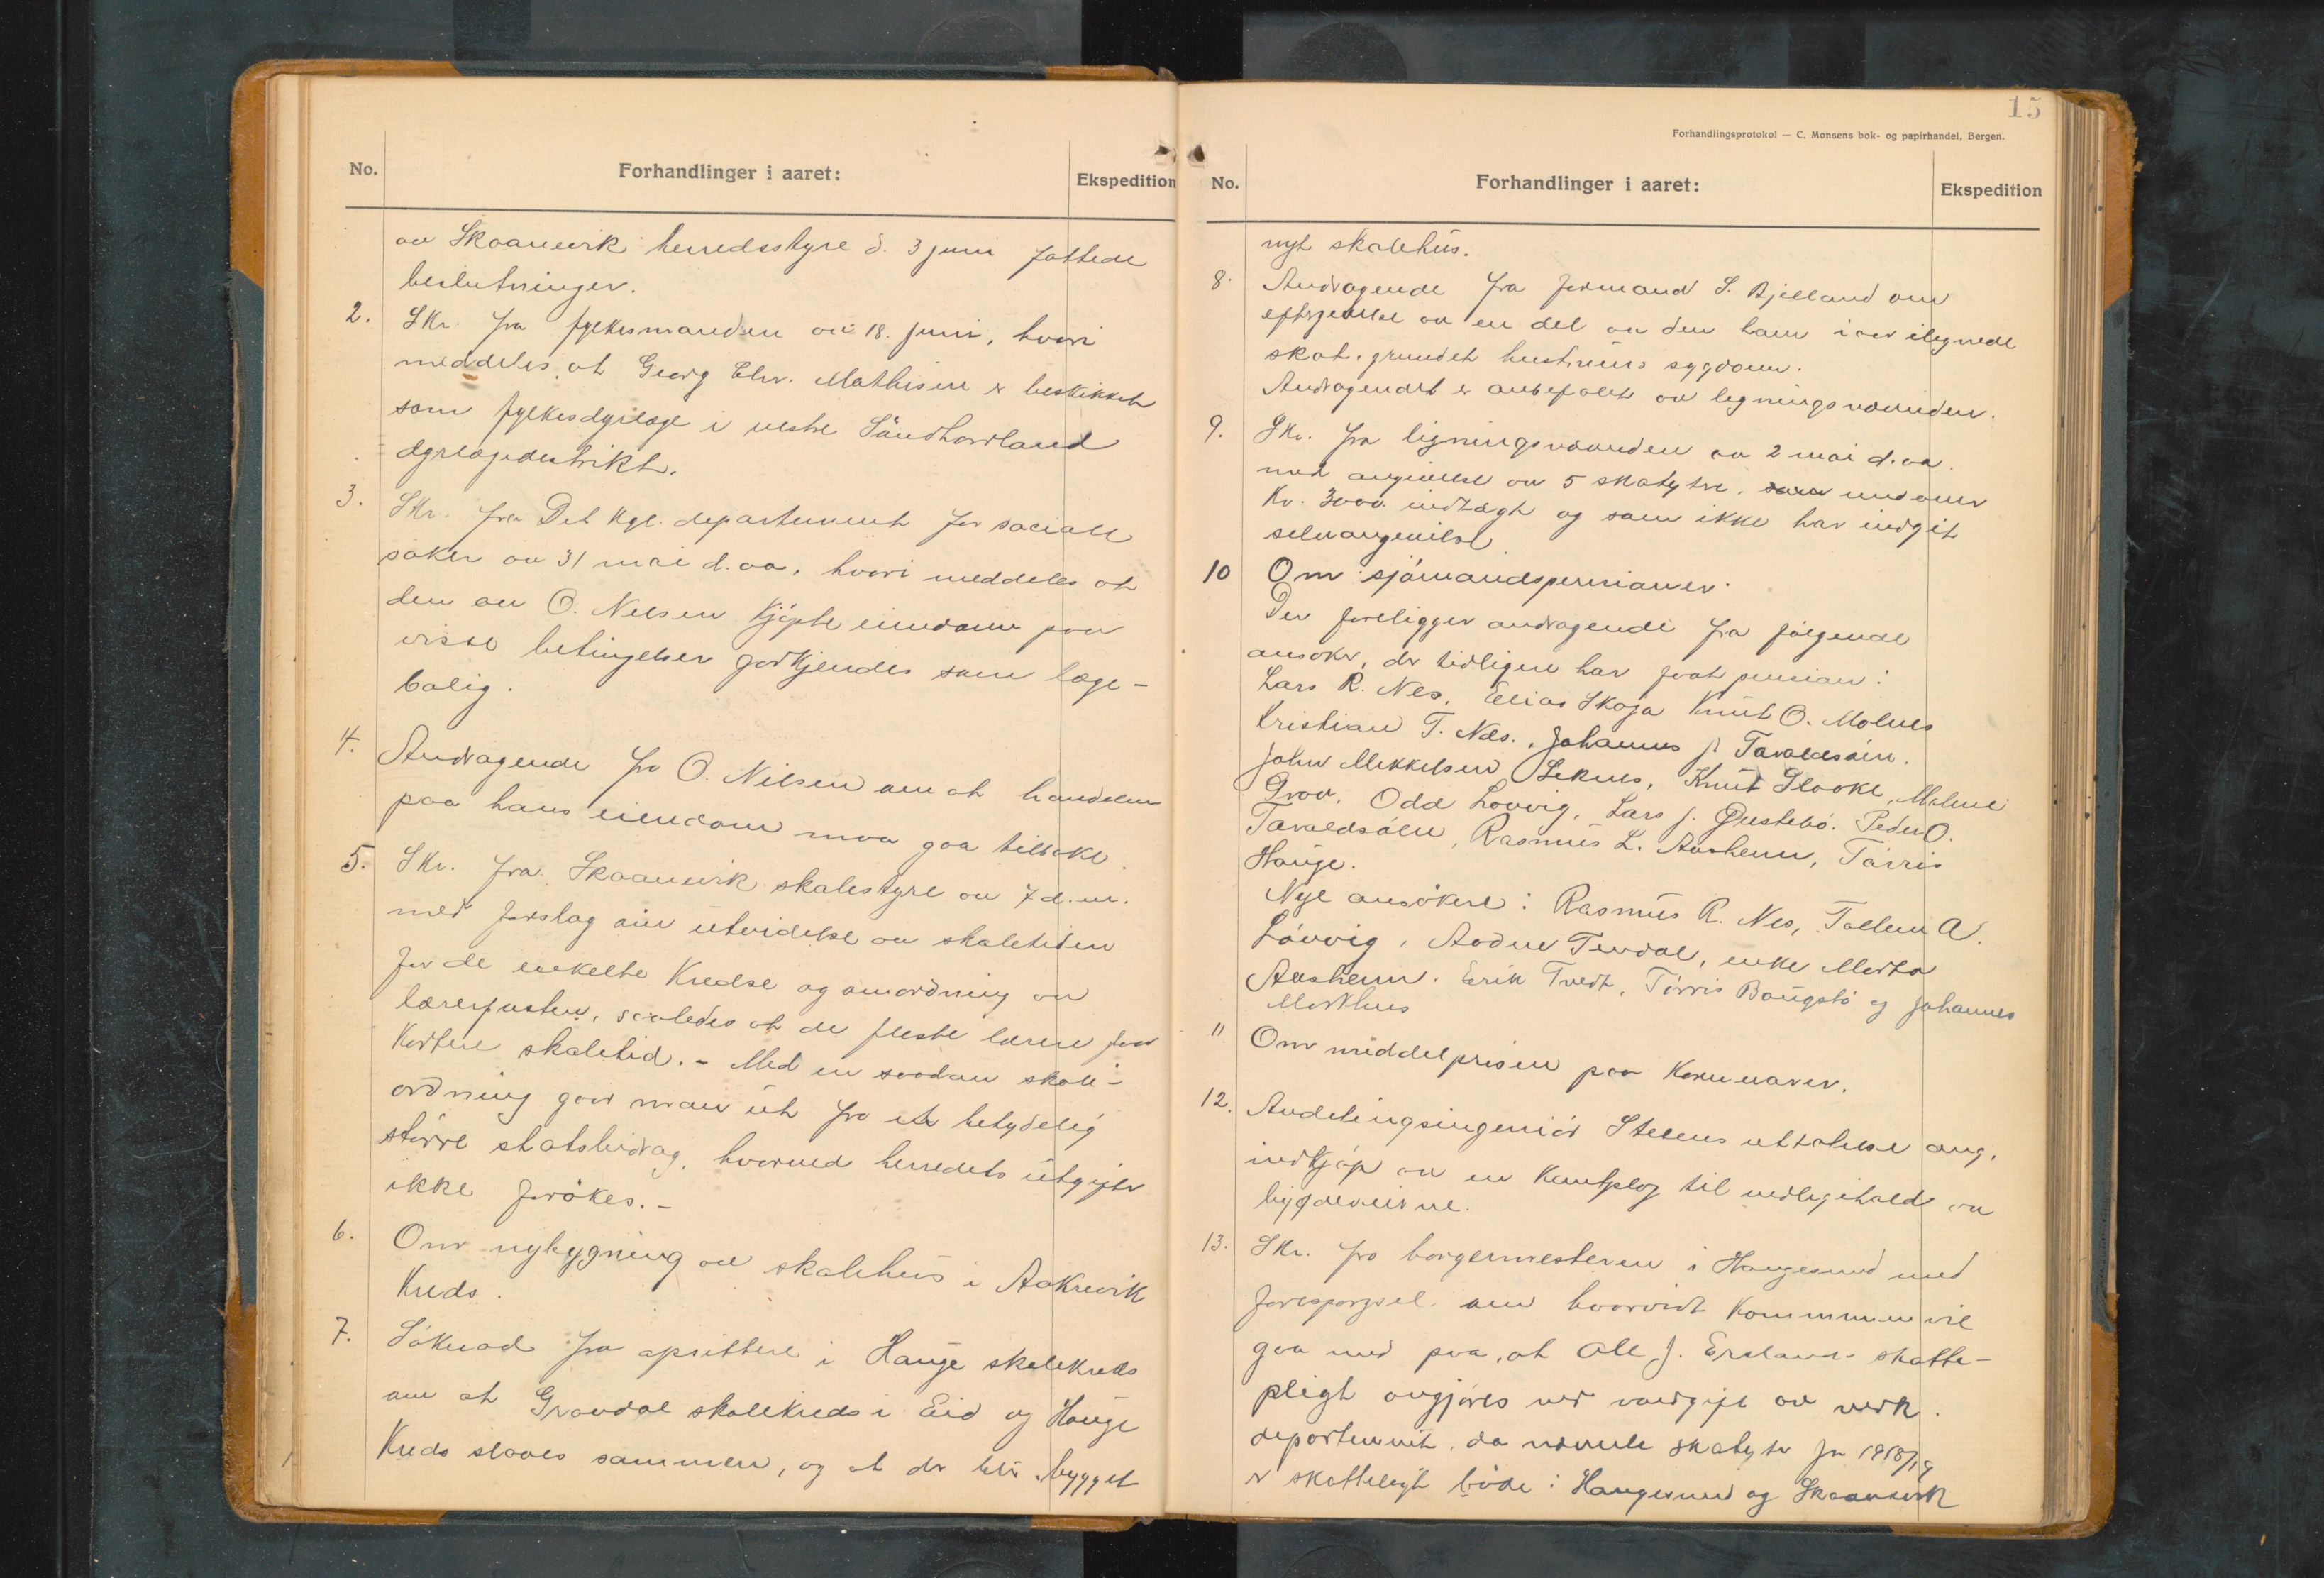 No.
Forhandlinger i aaret:
Ekspedition
av Skaanevik herredsstyre d. 3 juni fattede
beslutninger.
2. Skr. fra fylkesmanden av 18. juni, hvori
meddeles, at Georg Chr. Mathisen er beskikket
som fylkesdyrlæge i vestre Søndhordland
dyrlægedistrikt.
3. Skr. fra Det kgl. departement for sociale
saker av 31 mai d. aa. hvori meddeles at
den av O. Nilsen kjøpte eiendom paa
visse betingelser godkjendes som læge-
bolig.
4. Andragende fra O. Nilsen om at handelen
paa hans eiendom maa gaa tilbake.
5. Skr. fra Skaanevik skolestyre av 7 d. m.
med forslag om utvidelse av skoletiden
for de enkelte kredse og omordning av
lærerposten, saaledes at de fleste lærere faar
kortere skoletid. - Med en saadan skole-
ordning gaar man ut fra et betydelig
større statsbidrag, hvorved herredets utgifter
ikke forøkes. -
6. Om nybygning av skolehus i Aakrevik
kreds.
7. Søknad fra opsittere i Hauge skolekreds
om at Gravdal skolekreds i Eid og Hauge
kreds slaaes sammen, og at der blir bygget
15
Forhandlingsprotokol — C. Monsens bok- og papirhandel, Bergen.
No.
Forhandlinger i aaret:
Ekspedition
nyt skolehus.
8. Andragende fra formand S. Bjelland om
eftergivelse av en del av den ham iaar ilignede
skat, grundet hustruens sygdom.
Andragendet er anbefalet av ligningsnævnden.
9. Skr. fra ligningsnævnden av 2 mai d. aa.
med angivelse av 5 skatytre, med over
Kr. 3000 indtægt og som ikke har indgit
selvangivelse
10 Om sjømandspensioner.
Der foreligger andragende fra følgende
ansøkr, der tidligere har faat pension:
Lars R. Nes, Elias Skoga Knut O. Molnes
Kristian T. Næs., Johannes J. Tavaldsøen.
John Mikkelsen Leknes, Knut Flaake, Malene
Grov, Odd Løvvig, Lars J. Gustebø. Peder O.
Tavaldsøen, Rasmus L. Aasheim, Tørris
Hauge.
Nye ansøkere: Rasmus R. Nes, Tollein A.
Løvvig, Aadne Tendal, enke Marta
Aasheim. Erik Tvedt, Tørris Baugstø og Johannes
Markhus
11 Om middelprisen paa kornvarer.
12. Avdelingsingeniør Steens uttalelse ang.
indkjøp av en kantplog til vedlikehold av
bygdeveiene.
13. Skr. fra borgermesteren i Haugesund med
forespørsel om hvorvidt kommunen vil
gaa med paa, at Ole J. Erslands skatte-
pligt avgjøres ved voldgift av vedk.
departement, da nævnte skatyter for 1918/19
er skattelagt både i Haugesund og Skaanevik